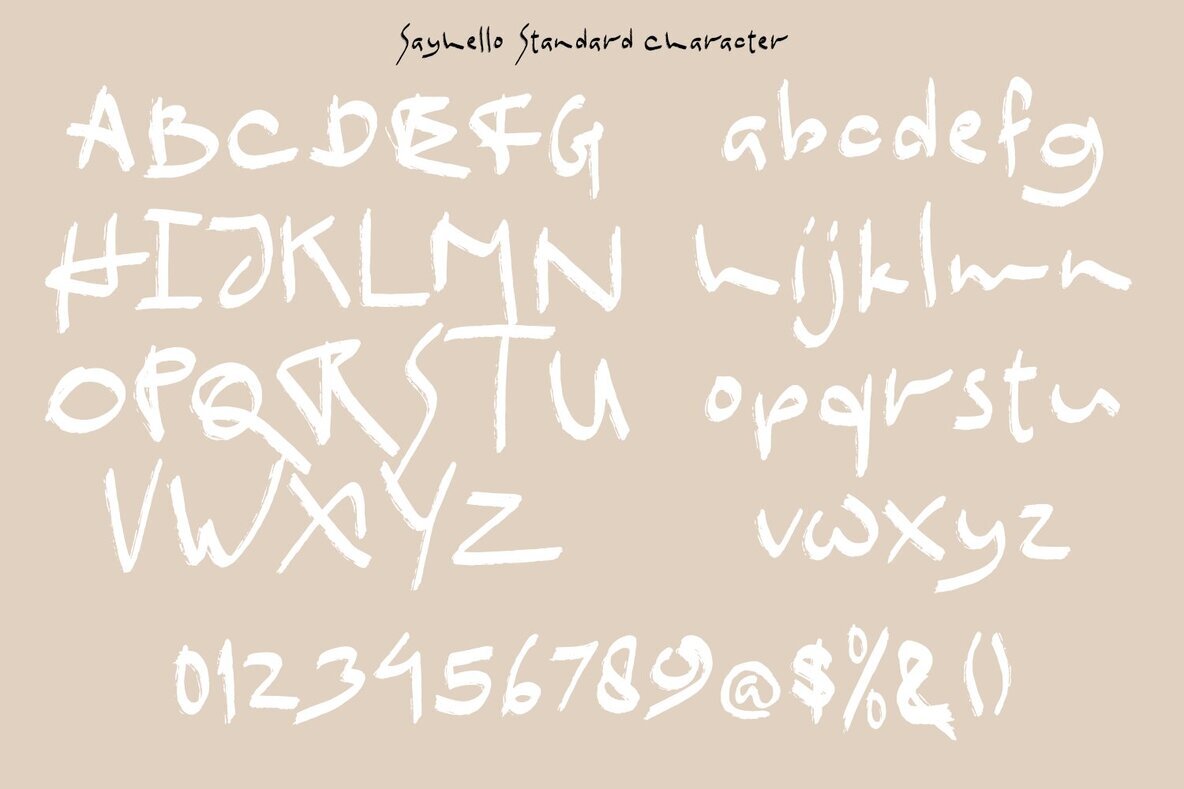 Sayhello Standard character
ABCDEFG
abcdefg
HIJKLMN
hijklmn
OPQRSTU
opqrstu
VWXYZ
vwxyz
0123456789@$%&()